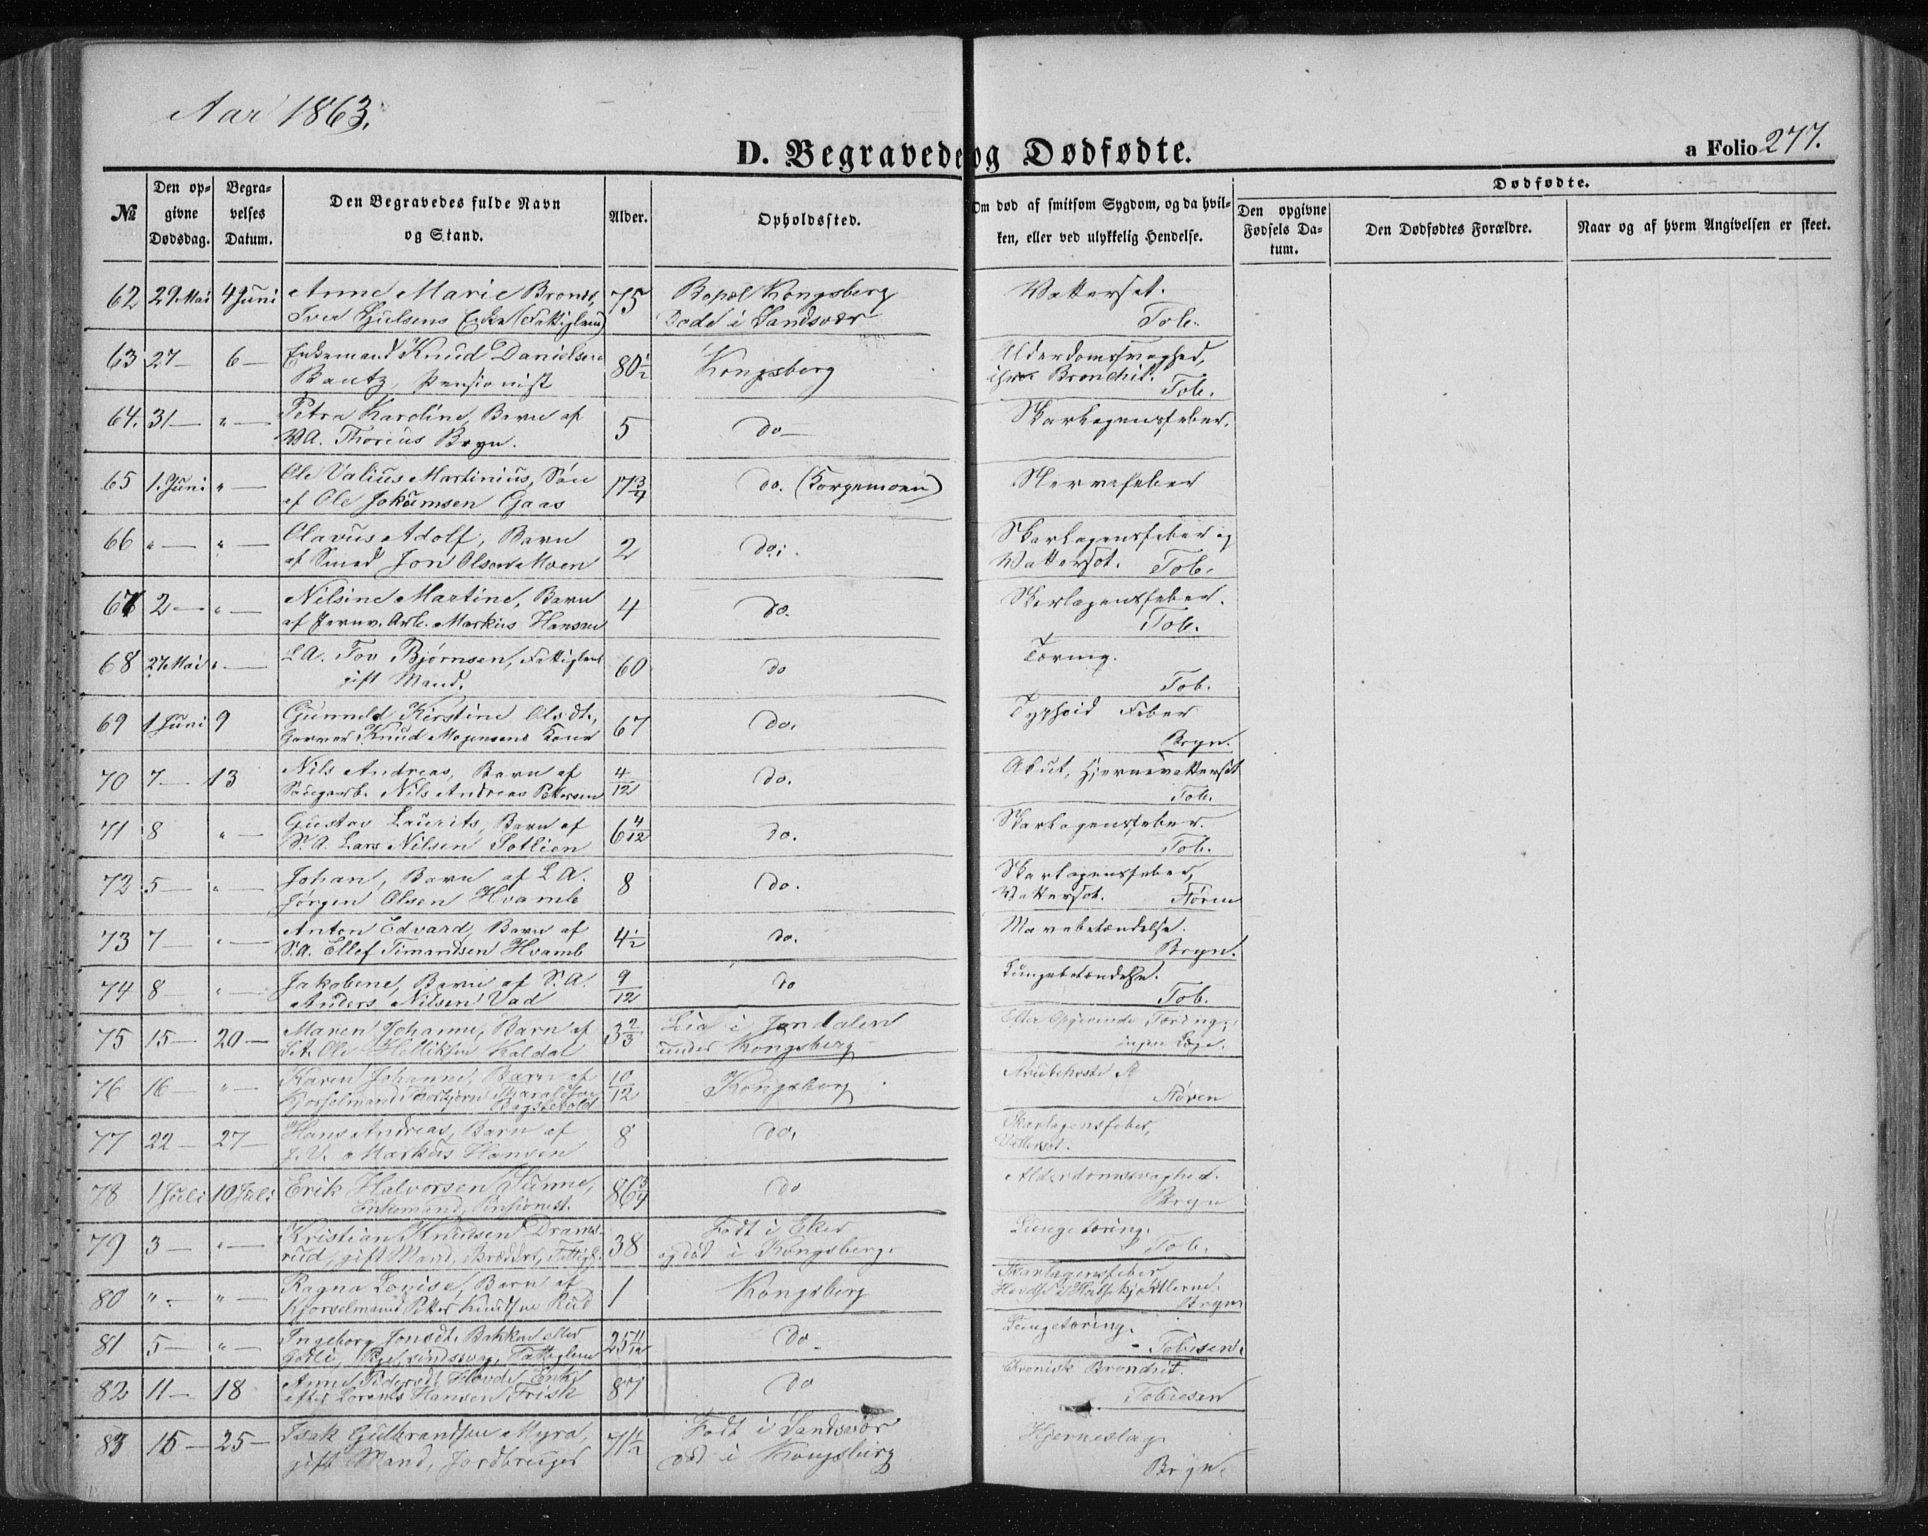 Aar 1863.
D. Begravede og Dødfødte.
a Folio 277.
№
Den opgivne Dødsdag.
Begravelses Datum.
Den Begravedes fulde Navn og Stand.
Alder.
Opholdssted.
Om død af smitsom Sygdom, og da hvilken, eller ved ulykkelig Hendelse.
Dødfødte.
Den opgivne Fødsels Datum.
Den Dødfødtes Forældre.
Naar og af hvem Angivelsen er skeet.
62 29 Mai 4 Juni Anne Marie 75 Bopæl Kongsberg Vattersot.
Enke (Fattiglem) Døde i Sandsvær Tob.
63 27 — 6 — Enkemand Knud Danielsen 80½ Kongsberg Alderdomssvaghed,
Bautz, Pensionist Bronchit. Tob.
64. 31 — " — Petra Karoline, Barn af 5 do — Skarlagensfeber.
Thorius Bryn.
65 1. Juni " — Ole Valius Martinius, Søn 17¾ do. (Korgemoen) Nervefeber
af Ole Jokumsen Gaas
66 " — " — Olavus Adolf, Barn 2 do. Skarlagensfeber og
af Smed Jon Olsen Moen Vattersot. Tob.
67 2 — " — Nilsine Martine, Barn 4 do. Skarlagensfeber.
af Jernv. Arb. Markus Hansen Tob.
68 27 Mai " — L.A. Tov Bjørnsen, Fattiglem 60 do Tæring.
gift Mand. Tob.
69 1 Juni 9 Gunnild Kirstine Olsdt., 67 do. Typhoid Feber
Garver Knud Mogensens Kone Bryn.
70 7 — 13 Nils Andreas, Barn af 4/12 do. Akut, Hjernevattersot
Saugarb. Nils Andreas Pettersen Tob.
71 8 " — Gustav Laurits, Barn af 6 4/12 do. Skarlagensfeber.
S.A. Lars Nilsen Sotlien Tob.
72 5 — " — Johan, Barn af L.A. 8 do. Skarlagensfeber,
Jørgen Olsen Hvamb Vattersot. Støren
73 7 — " — Anton Edvard, Barn af 4½ do. Mavebetændelse.
S.A. Ellef Timandsen Hvamb Bryn.
74 8 — " — Jakobine, Barn af S.A. 9/12 do Lungebetændelse.
Anders Nilsen Vad Tob.
75 15 — 20 — Maren Johanne, Barn af 3⅔ Lia i Jondalen Efter Opgivende Tæring;
Ole Helliksen Kaldal under Kongsberg ingen Læge.
76 16 — " — Karen Johanne, Barn af 10/12 Kongsberg
Kjørselmand Thorbjørn Haraldsen Støren
77 22 — 27 — Hans Andreas, Barn af 8 do. Skarlagensfeber,
Markus Hansen Vattersot.
78 1 Juli 10 Juli Erik Halvorsen Sunne, 86¾ do Alderdomssvaghed.
Enkemand, Pensionist. Bryn
79 3 — " — Kristian Knudsen Dramsrud, 38 Født i Eker Lungetæring.
gift Mand, Fattigl. og død i Kongsberg. Tob.
80 " — " — Ragna Lovise, Barn af 1 Kongsberg Skarlagensfeber
Kjørselmand Petter Knudsen Rud Bryn
81 5 — " — Ingeborg Jonsdt. Bakken eller 25 11/12 do Lungetæring.
Fattiglem Tobiesen.
82 11 — 18 Anne Pedersdt. Hovde, Enke 87 do Chronisk Bronchit.
efter Lorents Hansen Frisk Tobiesen
83 15 — 25 — Isak Gulbrandsen Myra, 71½ Født i Sandsvær Hjerneslag
gift Mand, Jordbruger død i Kongsberg Bryn.